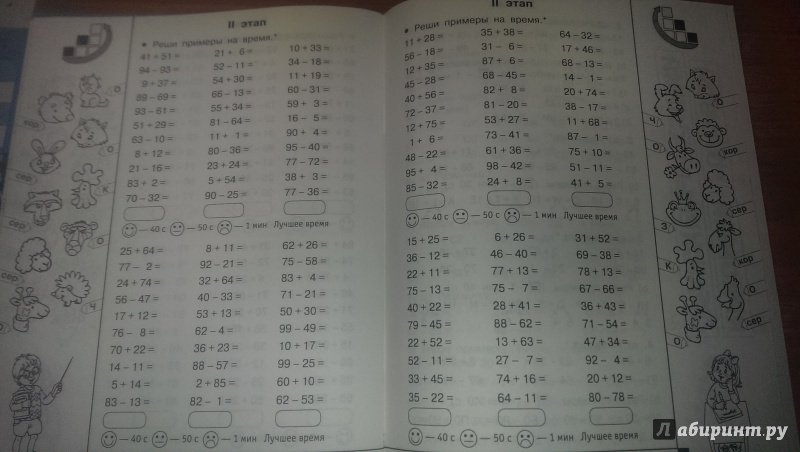 II этап
• Реши примеры на время.*
41 + 51 = 21 + 6 = 10 + 33 =
94 – 93 = 52 – 11 = 34 – 18 =
9 + 37 = 54 + 30 = 11 + 19 =
89 – 69 = 66 – 13 = 60 – 31 =
93 – 61 = 55 + 34 = 59 + 3 =
51 + 29 = 81 – 64 = 16 – 5 =
63 – 10 = 11 + 1 = 90 + 4 =
8 + 12 = 80 – 36 = 95 – 40 =
21 – 16 = 23 + 24 = 77 – 72 =
83 + 2 = 5 + 54 = 38 + 3 =
70 – 32 = 90 – 25 = 77 – 36 =
– 40 с – 50 с – 1 мин Лучшее время
25 + 64 = 8 + 11 = 62 + 26 =
77 – 2 = 92 – 21 = 75 – 58 =
24 + 74 = 32 + 64 = 83 + 4 =
56 – 47 = 40 – 33 = 71 – 21 =
17 + 12 = 53 + 13 = 50 + 30 =
76 – 8 = 62 – 4 = 99 – 49 =
70 + 22 = 36 + 23 = 10 + 17 =
14 – 11 = 88 – 57 = 99 – 25 =
5 + 14 = 2 + 85 = 60 + 10 =
83 – 13 = 82 – 1 = 62 – 53 =
– 40 с – 50 с – 1 мин Лучшее время
о
кор
о
к
сер
о
сер
ч
о
II этап
• Реши примеры на время.*
11 + 28 = 35 + 38 = 64 – 32 =
56 – 18 = 31 – 6 = 17 + 46 =
12 + 35 = 87 + 6 = 68 – 13 =
45 – 28 = 68 – 45 = 14 – 1 =
40 + 56 = 82 + 8 = 20 + 74 =
72 – 37 = 81 – 20 = 38 – 17 =
12 + 75 = 53 + 27 = 11 + 68 =
1 + 6 = 73 – 41 = 87 – 1 =
48 – 22 = 61 + 36 = 75 + 10 =
95 + 4 = 98 – 42 = 51 – 11 =
85 – 32 = 24 + 8 = 41 + 5 =
– 40 с – 50 с – 1 мин Лучшее время
15 + 25 = 6 + 26 = 31 + 52 =
36 – 12 = 46 – 40 = 69 – 38 =
22 + 11 = 77 + 13 = 78 + 13 =
75 – 13 = 75 – 7 = 67 – 66 =
40 + 22 = 28 + 41 = 36 + 43 =
79 – 45 = 88 – 62 = 71 – 54 =
22 + 52 = 13 + 63 = 47 + 34 =
52 – 11 = 27 – 7 = 92 – 4 =
33 + 45 = 74 + 16 = 20 + 12 =
35 – 22 = 64 – 11 = 80 – 78 =
– 40 с – 50 с – 1 мин Лучшее время
о
ч
кор
о
сер
з
кор
к
о
сер
о
Лабиринт.ру